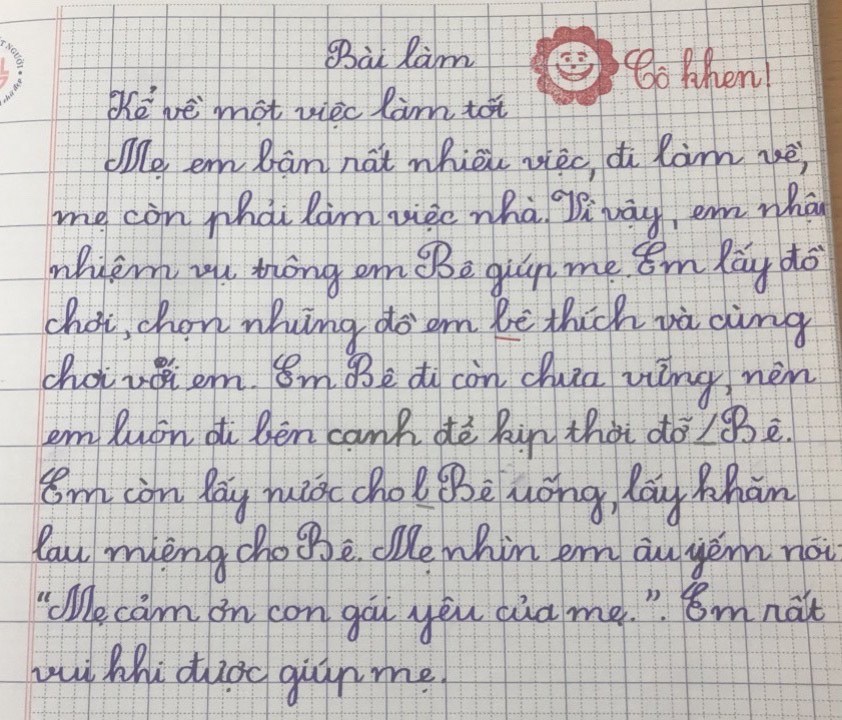 Bài làm
Cô khen!
Kể về một việc làm tốt
Mẹ em bận rất nhiều việc, đi làm về,
mẹ còn phải làm việc nhà. Vì vậy, em nhận
nhiệm vụ trông em Bê giúp mẹ. Em lấy đồ
chơi, chọn những đồ em bê thích và cùng
chơi với em. Em Bê đi còn chưa vững, nên
em luôn đi bên cạnh để kịp thời đỡ Bê.
Em còn lấy nước cho Bê uống, lấy khăn
lau miệng cho Bê. Mẹ nhìn em âu yếm nói:
“Mẹ cảm ơn con gái yêu của mẹ.”. Em rất
vui khi được giúp mẹ.